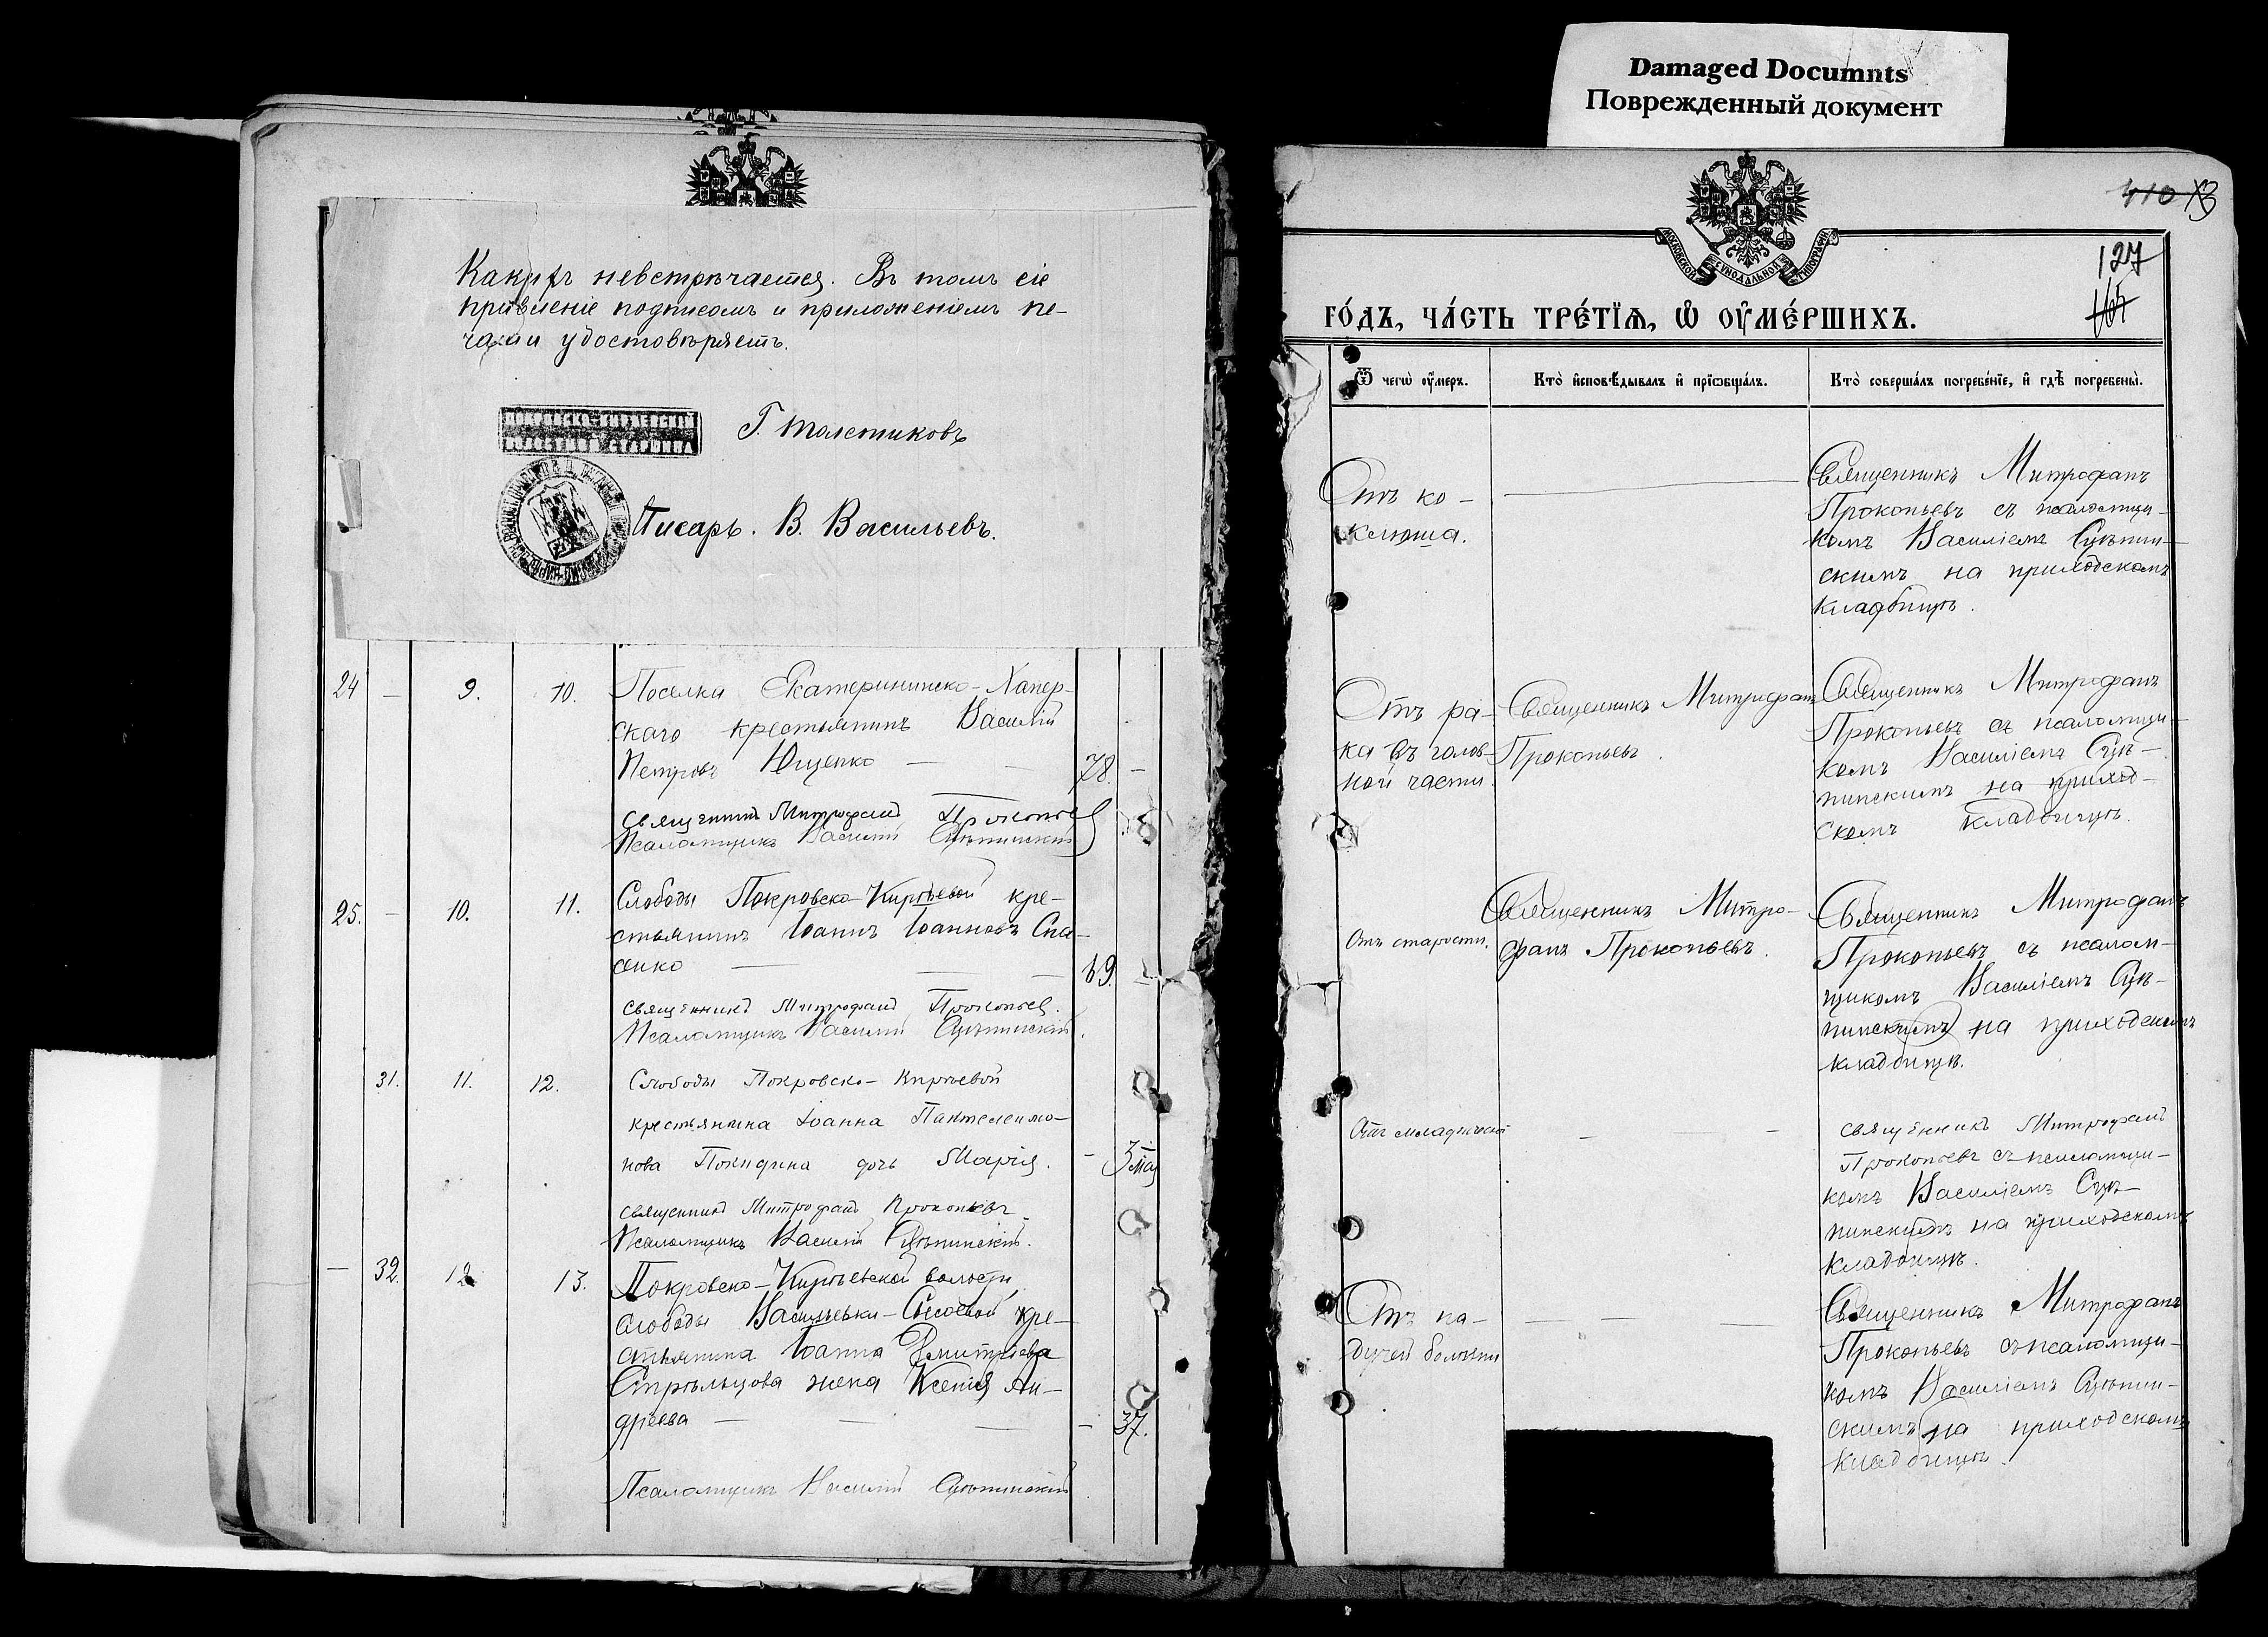 Damaged Documnts
Поврежденный документ
невстрѣчается. Въ томъ сіе
правленіе подписомъ и приложеніемъ пе-
чати удостовѣряетъ.
ПОКРОВСКО-КИРѢЕВСКІЙ
ВОЛОСТНОЙ СТАРШИНА
Г. Толстиковъ
Писарь. В. Васильевъ.
24 — 9. 10. Поселка Екатерининско-Хапер-
скаго крестьянинъ Василій
Петровъ Ющенко — — 78. —
Священникъ Митрофанъ Прокопьев
Псаломщикъ Василій
25. — 10. 11. Слободы Покровско-Кирѣевой кре-
стьянинъ Іоаннъ Іоанновъ Спа-
сенко — — — 69. —
Священникъ Митрофанъ Прокопьев.
Псаломщикъ Василій
31. 11. 12. Слободы Покровско-Кирѣевой
крестьянина Іоанна Пантелеимо-
нова дочь Марія. — 3 мѣс
Священникъ Митрофанъ Прокопьевъ
Псаломщикъ Василій
— 32. 12. 13. Покровско-Кирѣевской волости,
слободы Васильевки- кре-
стьянина Іоанна Дмитріева
Стрѣльцова жена Ксенія Ан-
дреева — — — — 37.
Псаломщикъ Василій
410
127
165
МОСКОВСКОЙ СѴНОДАЛЬНОЙ ТИПОГРАФІИ
ГО́ДЪ, ЧА́СТЬ ТРЕ́ТІѦ, Ѡ҆ ОУ҆МЕ́РШИХЪ.
Ѿ чегѡ̀ оу҆́меръ. Кто̀ и҆сповѣ́дывалъ и҆ прїѡбща́лъ. Кто̀ соверша́лъ погребе́нїе, и҆ гдѣ̀ погребены̀.
Отъ ко-
клюша.
—
Священникъ Митрофанъ
Прокопьевъ съ псаломщи-
комъ Василіемъ
скимъ на приходскомъ
кладбищѣ.
Отъ ра-
ка въ голов-
ной части.
Священникъ Митрофанъ
Прокопьевъ.
Священникъ Митрофанъ
Прокопьевъ съ псаломщи-
комъ Василіемъ
пинскимъ на приход-
скомъ кладбищѣ.
Отъ старости.
Священникъ Митро-
фанъ Прокопьевъ.
Священникъ Митрофанъ
Прокопьевъ съ псалом-
щикомъ Василіемъ
пинскимъ на приходскомъ
кладбищѣ.
Отъ младенческой
— — —
Священникъ Митрофанъ
Прокопьевъ съ псаломщи-
комъ Василіемъ
пинскимъ на приходскомъ
кладбищѣ.
Отъ па-
дучей болѣзни
— — —
Священникъ Митрофанъ
Прокопьевъ съ псаломщи-
комъ Василіемъ
скимъ на приходскомъ
кладбищѣ.